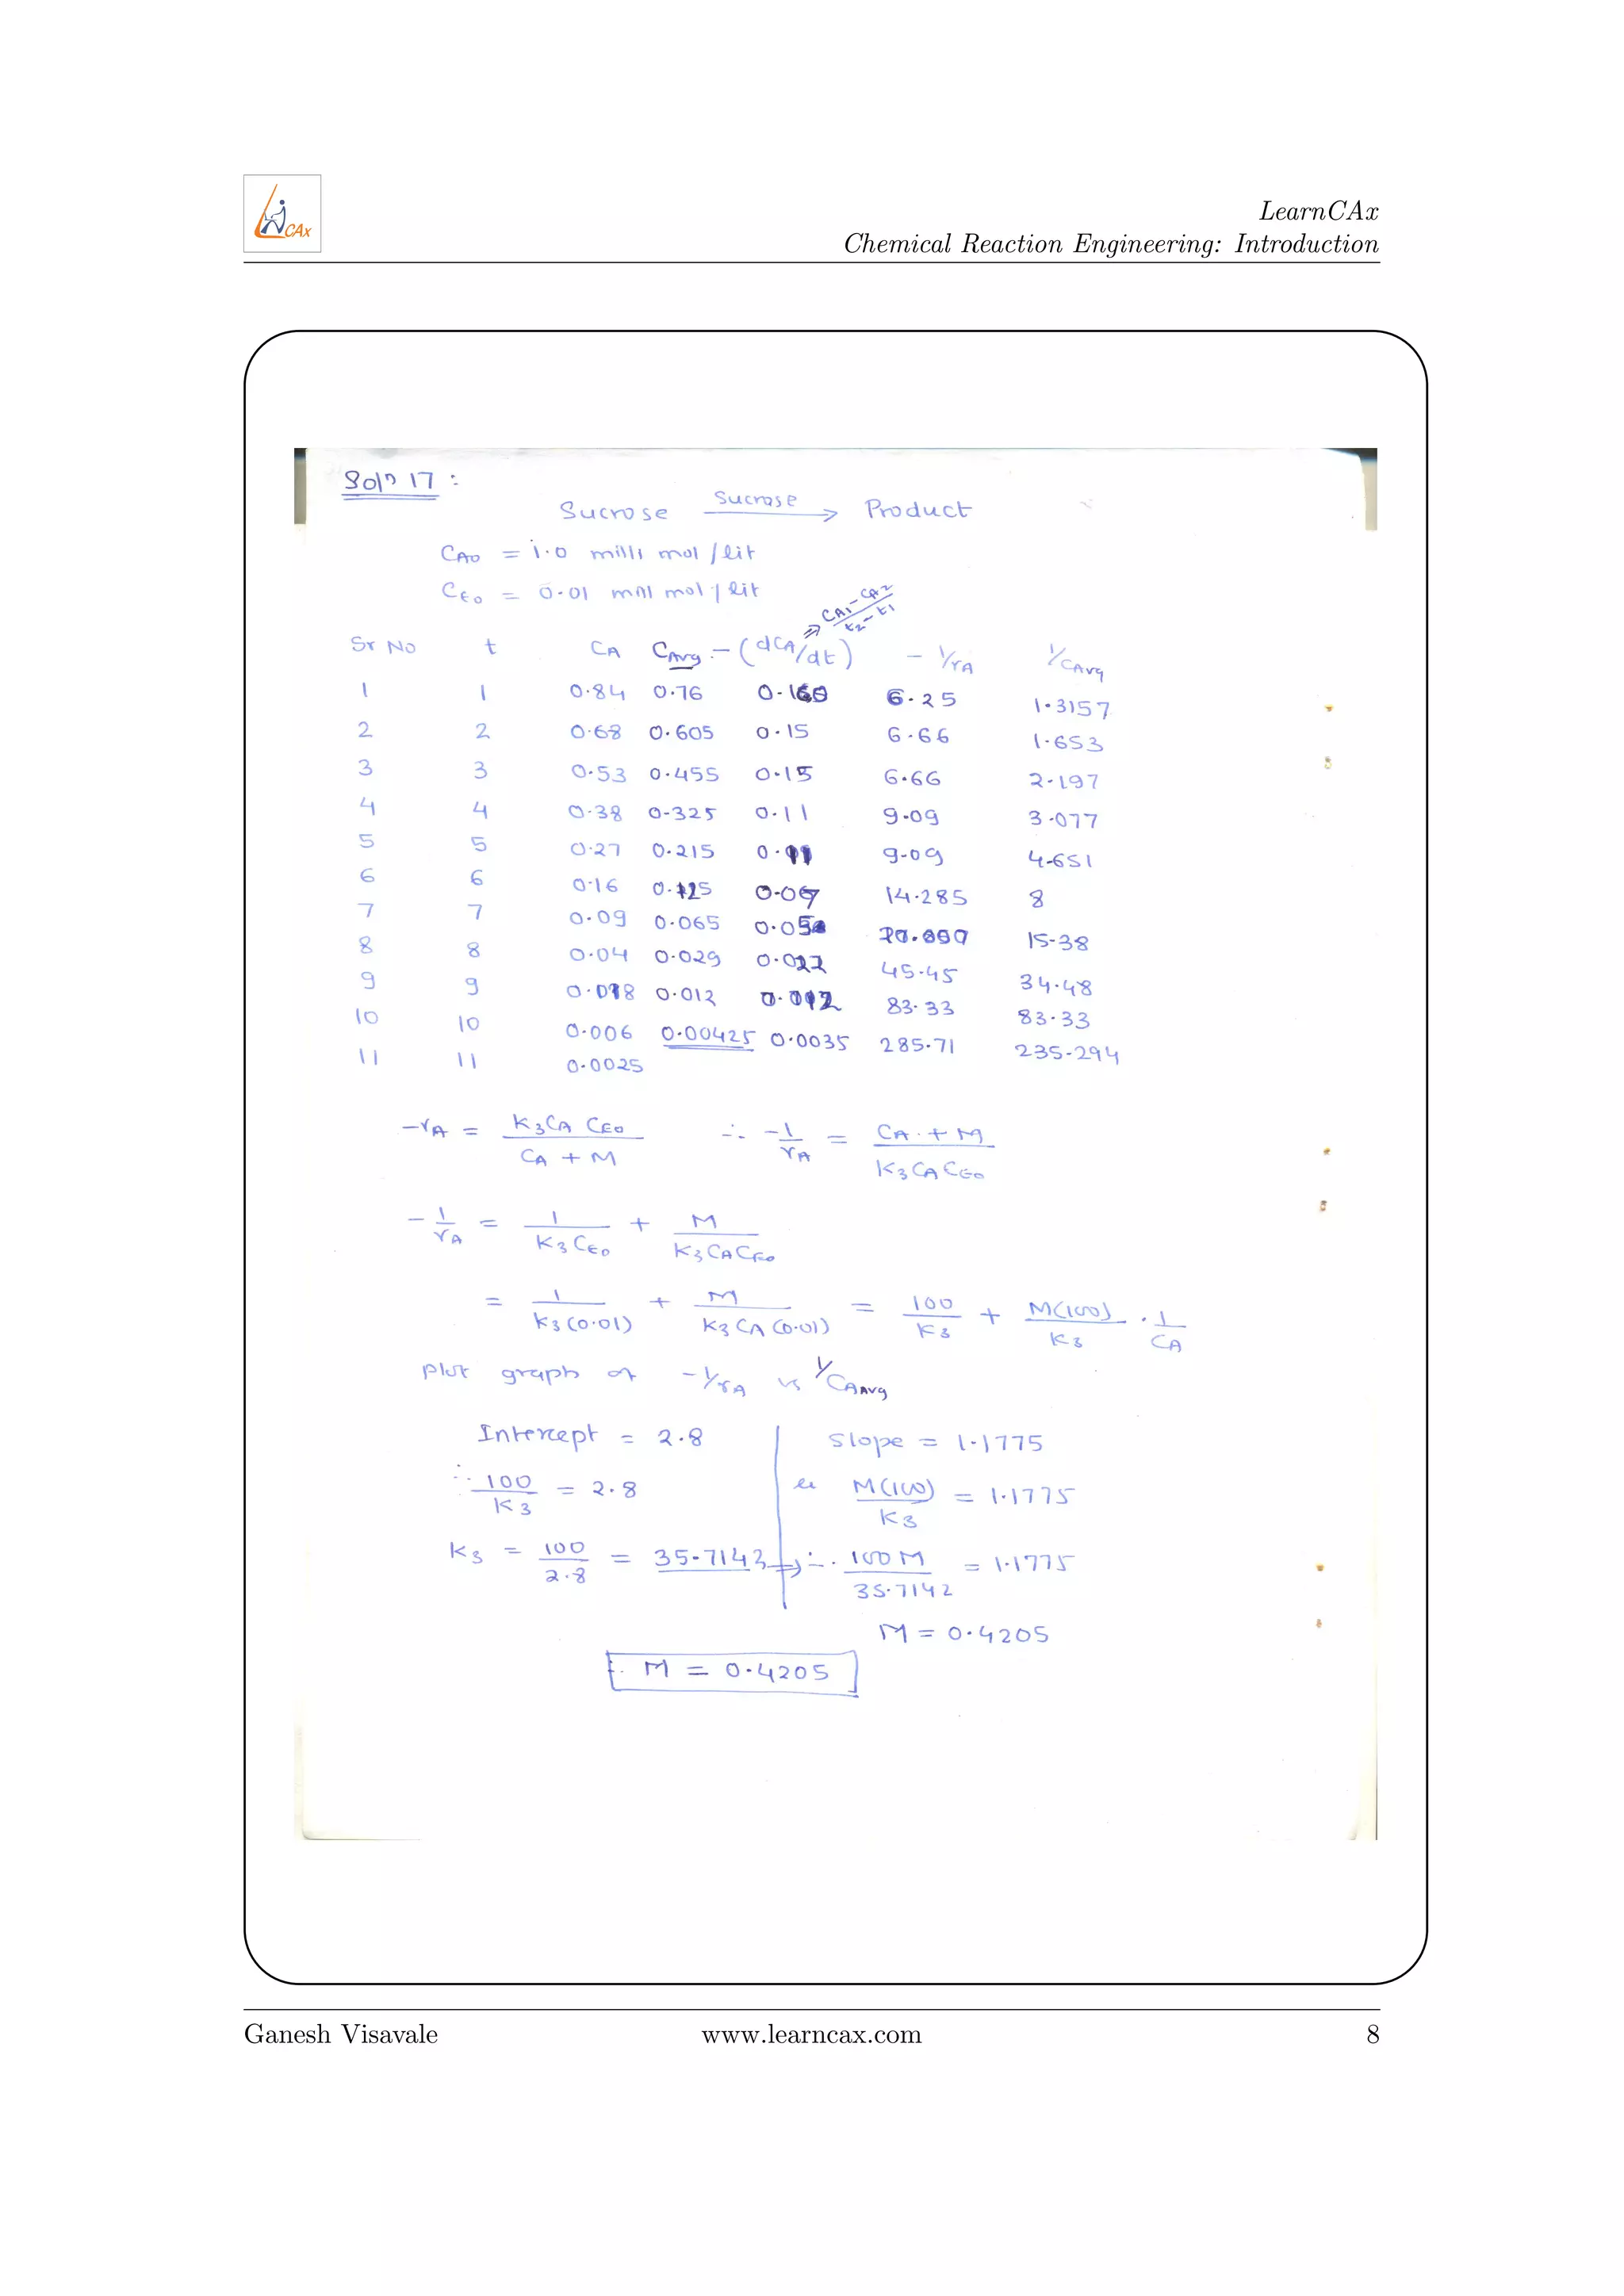 CAx
LearnCAx
Chemical Reaction Engineering: Introduction
Soln 17 :
Sucrose —Sucrase→ Product
CA0 = 1.0 milli mol / lit
CE0 = 0.01 mill mol / lit
⇒ CA1 - CA2 / t2 - t1
Sr No t CA CAvg -(dCA/dt) - 1/rA 1/CAvg
1 1 0.84 0.76 0.160 6.25 1.3157
2 2 0.68 0.605 0.15 6.66 1.653
3 3 0.53 0.455 0.15 6.66 2.197
4 4 0.38 0.325 0.11 9.09 3.077
5 5 0.27 0.215 0.11 9.09 4.651
6 6 0.16 0.125 0.07 14.285 8
7 7 0.09 0.065 0.05 15.38
8 8 0.04 0.029 0.022 45.45 34.48
9 9 0.018 0.012 0.012 83.33 83.33
10 10 0.006 0.00425 0.0035 285.71 235.294
11 11 0.0025
-rA = K3 CA CE0 / CA + M ∴ -1/rA = CA + M / K3 CA CE0
-1/rA = 1 / K3 CE0 + M / K3 CA CE0
= 1 / K3 (0.01) + M / K3 CA (0.01) = 100 / K3 + M(100) / K3 . 1 / CA
Plot graph of -1/rA vs 1/CA Avg
Intercept = 2.8 Slope = 1.1775
∴ 100 / K3 = 2.8 M(100) / K3 = 1.1775
K3 = 100 / 2.8 = 35.7142 → ∴ 100 M / 35.7142 = 1.1775
M = 0.4205
∴ M = 0.4205
Ganesh Visavale www.learncax.com 8